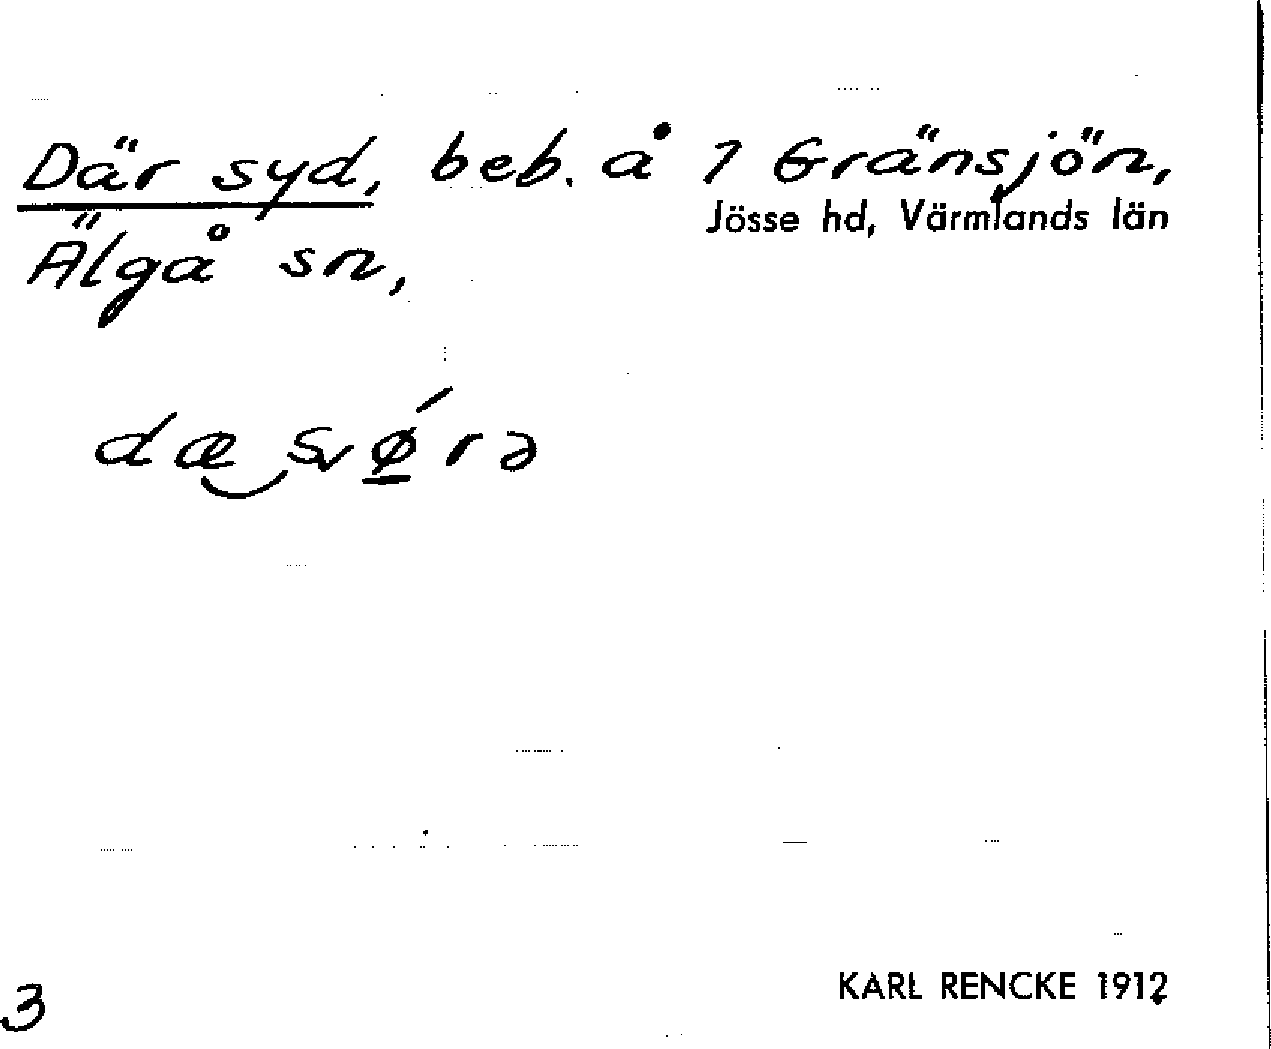 Där syd, beb. å 1 Gränsjön,
Jösse hd, Värmlands län
Älgå sn,
dæ svǿrə
3
KARL RENCKE 1912